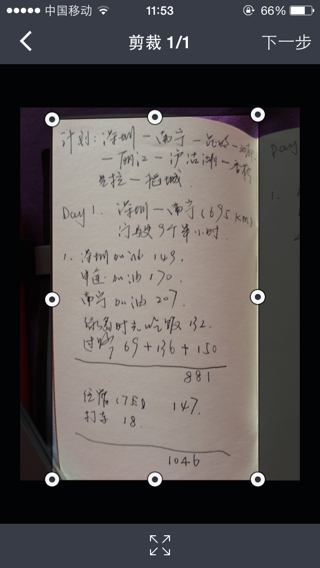 中国移动 11:53 66%
剪裁 1/1 下一步
计划：深圳—南宁—昆明—
—丽江—泸沽湖—香格
里拉—稻城.
Day 1. 深圳—南宁(695km)
9个半小时.
1. 深圳加油 143.
中途加油 170
南宁加油 207
吃饭 132.
过路 69+136+150
881
住宿 147.
打车 18.
1046
Day
1.